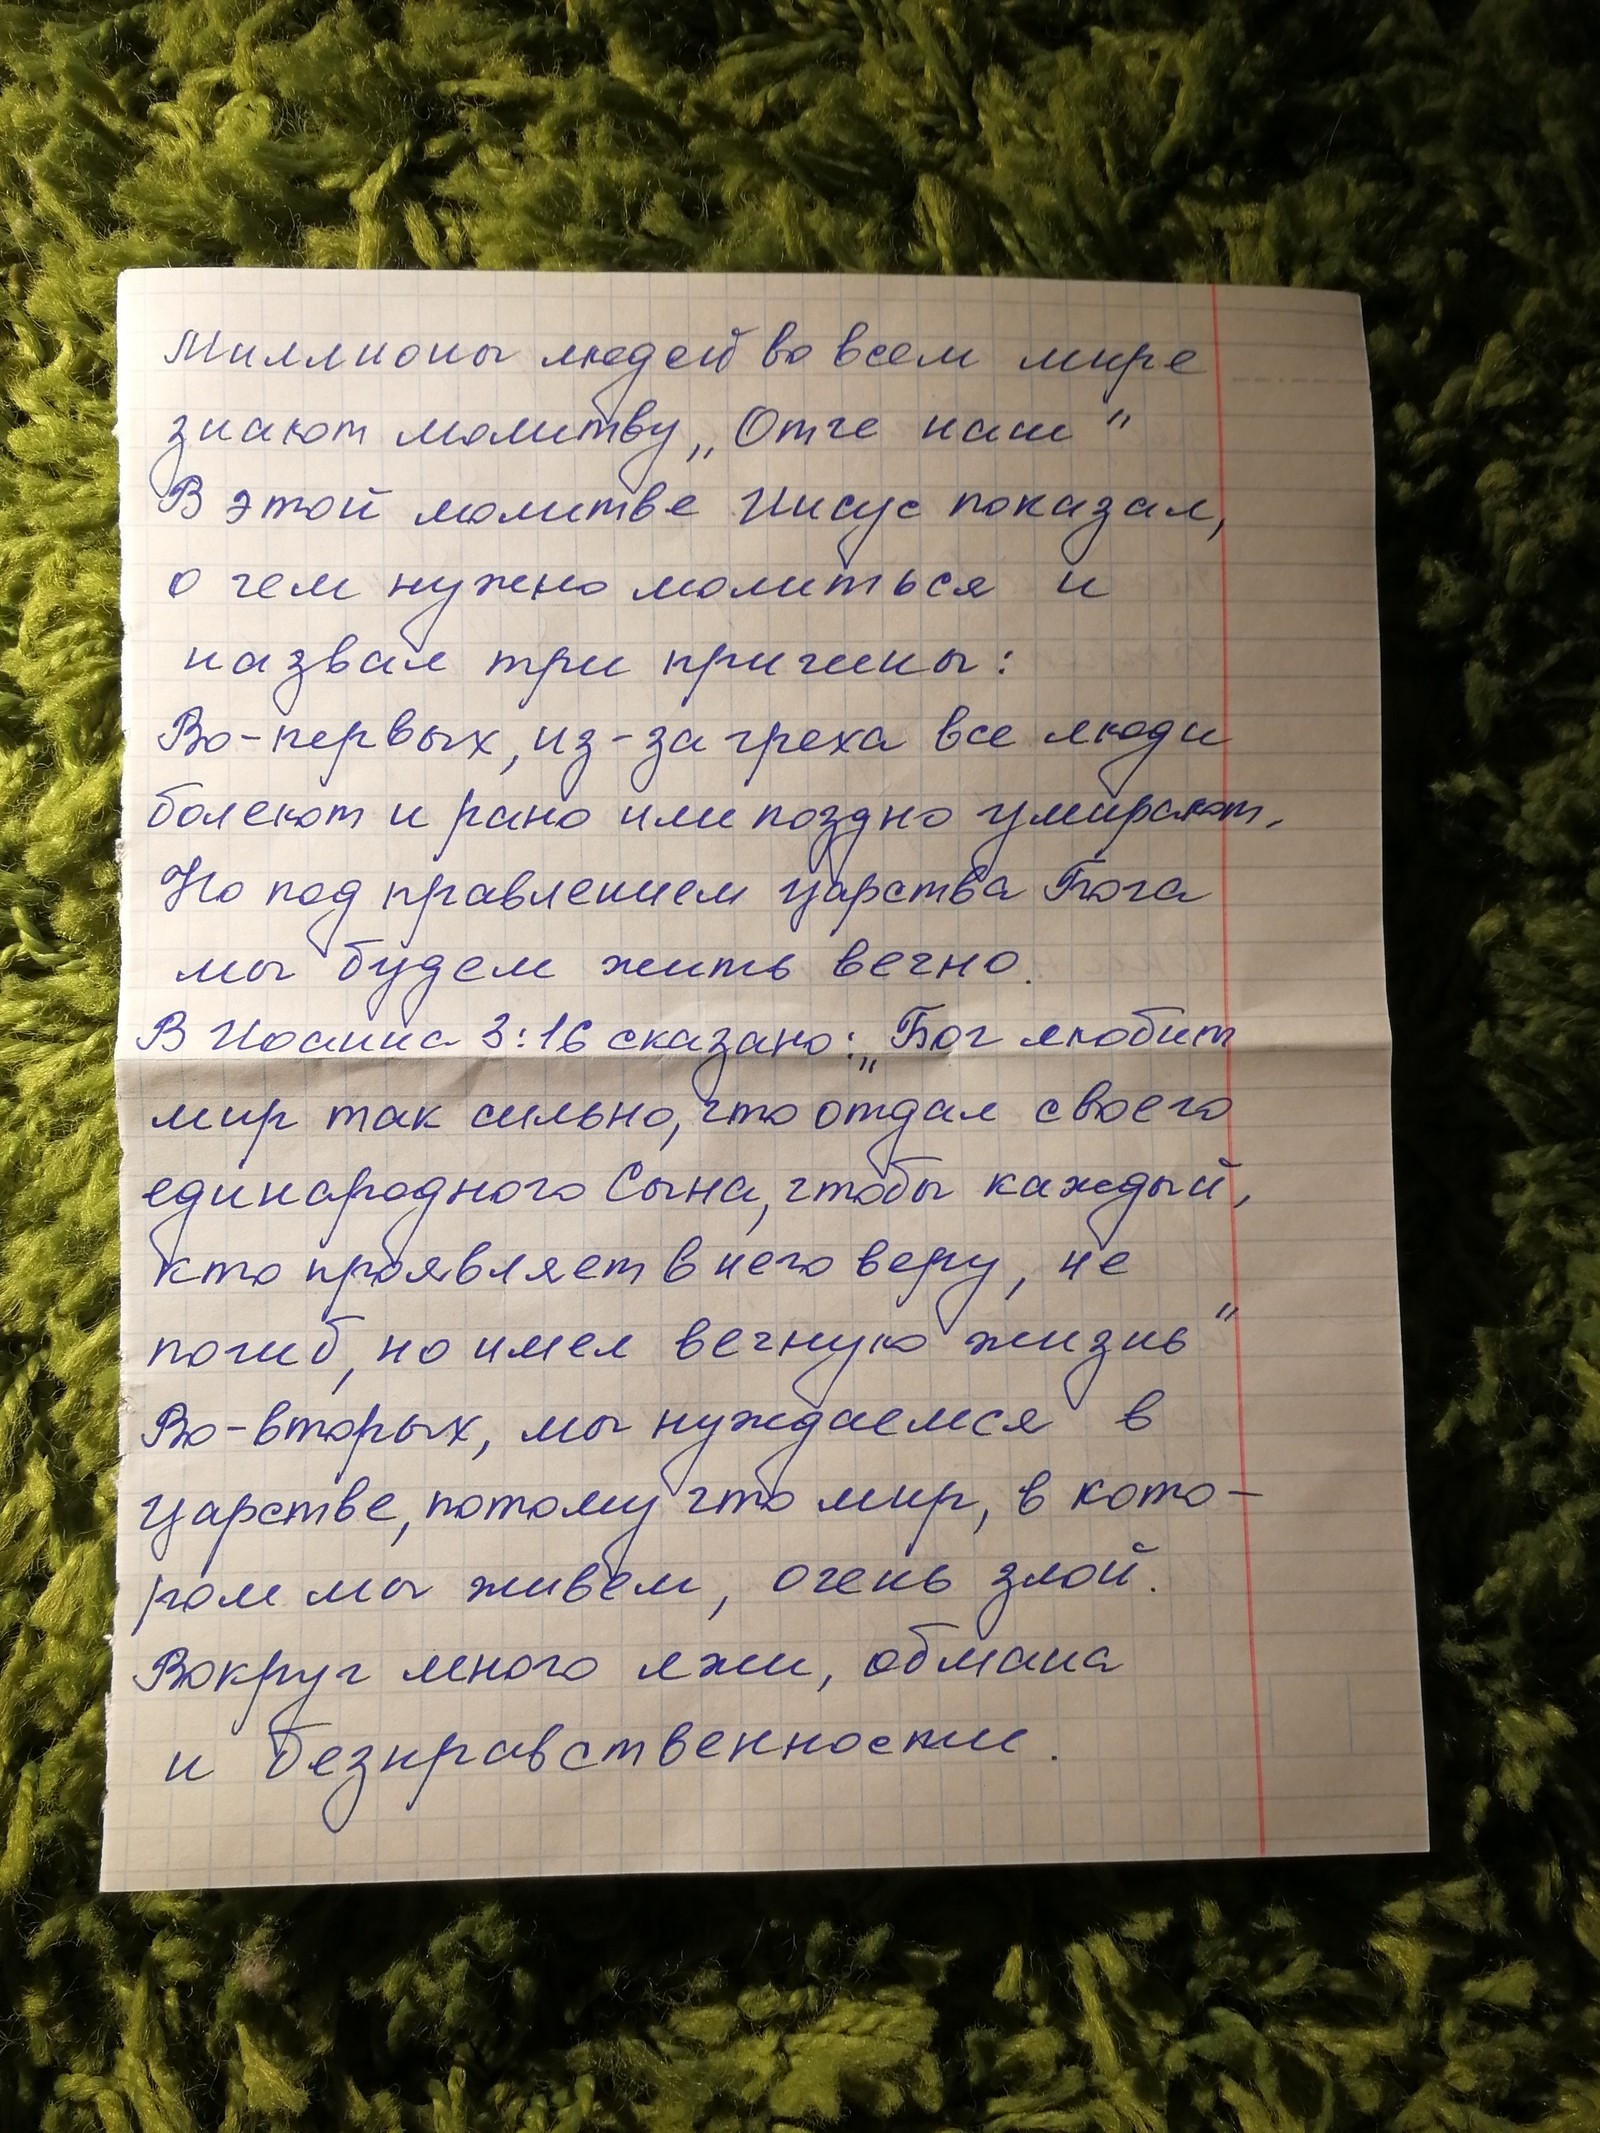 Миллионы людей во всем мире
знают молитву „Отче наш"
В этой молитве Иисус показал,
о чем нужно молиться и
назвал три причины:
Во-первых, из-за греха все люди
болеют и рано или поздно умирают.
Но под правлением царства Бога
мы будем жить вечно.
В Иоанна 3:16 сказано: „Бог любит
мир так сильно, что отдал своего
единародного Сына, чтобы каждый,
кто проявляет в него веру, не
погиб, но имел вечную жизнь"
Во-вторых, мы нуждаемся в
царстве, потому что мир, в кото-
ром мы живем, очень злой.
Вокруг много лжи, обмана
и безнравственности.